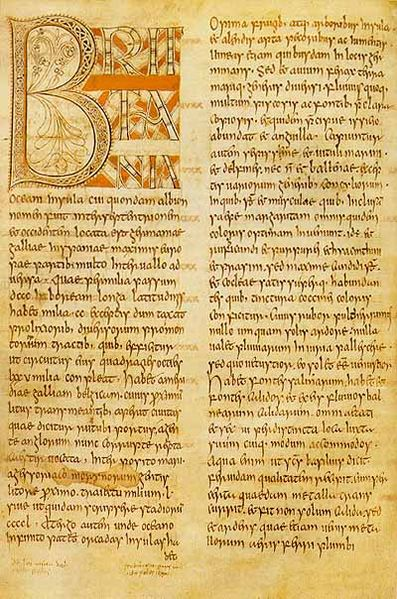 BRIT
TA
NIA
oceani insula cui quondam albion
nomen fuit inter septentrionem
et occidentem locata est germaniae
galliae hispaniae maximis euro
pae partibus multo interuallo ad
uersa. Quae per milia passuum
dccc in boream longa latitudinis
habet milia cc exceptis dum taxat
prolixioribus diuersorum promon
toriorum tractibus quibus efficitur
ut circuitus eius quadragies octies
lxxv milia conpleat. Habet a meri
die galliam belgicam cuius proximum
litus transmeantibus aperit ciuitas
quae dicitur rutubi portus a gen
te anglorum nunc corrupte repta
caestir uocata, interposito mari
a gessoriaco morynorum gentis
litore proximo traiectu milium l
siue ut quidam scripsere stadiorum
ccccl. A tergo autem unde oceano
infinito patet orcadas insulas ha
bet
Opima frugibus atque arboribus insula
et alendis apta pecoribus ac iumentis
uineas etiam quibusdam in locis ger
minans. Sed et auium ferax terra
marique generis diuersi. fluuiis quoque
multum piscosis ac fontibus praeclara
copiosis, et quidem praecipue issicio
abundat et anguilla. Capiuntur
autem saepissime et uituli marini
et delphines nec non et ballenae exceptis
uariorum generibus concyliorum
in quibus sunt et musculae quibus inclusam
saepe margaritam omnis quidem
coloris optimam inueniunt. id est et
rubicundi et purpurei et hyacinthini
et prasini sed maxime candidi. sunt
et cocleae satis superque habundan
tes quibus tinctura coccinei coloris
conficitur. cuius rubor pulcherrimus
nullo umquam solis ardore nulla
ualet pluuiarum iniuria pallescere
sed quo uetustior eo solet esse uenustior
Habet fontes salinarum habet et
fontes calidos et ex eis fluuios bal
nearum calidarum omni aetati
et sexui per distincta loca iuxta
suum cuique modum accommodos.
Aqua enim ut sanctus basilius dicit
feruidam qualitatem recipit cum per
certa quaedam metalla transcurrit
et fit non solum calida sed
et ardens quae etiam uenis metallorum
aeris ferri plumbi